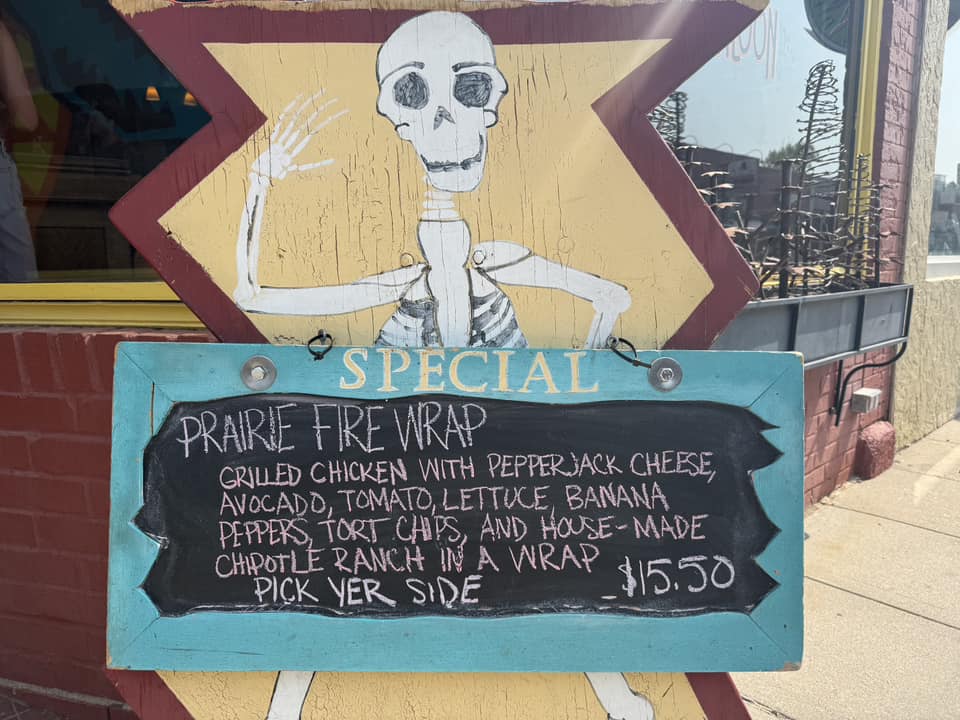 SPECIAL
PRAIRIE FIRE WRAP
GRILLED CHICKEN WITH PEPPERJACK CHEESE,
AVOCADO, TOMATO, LETTUCE, BANANA
PEPPERS, TORT CHIPS, AND HOUSE-MADE
CHIPOTLE RANCH IN A WRAP
PICK YER SIDE
$15.50